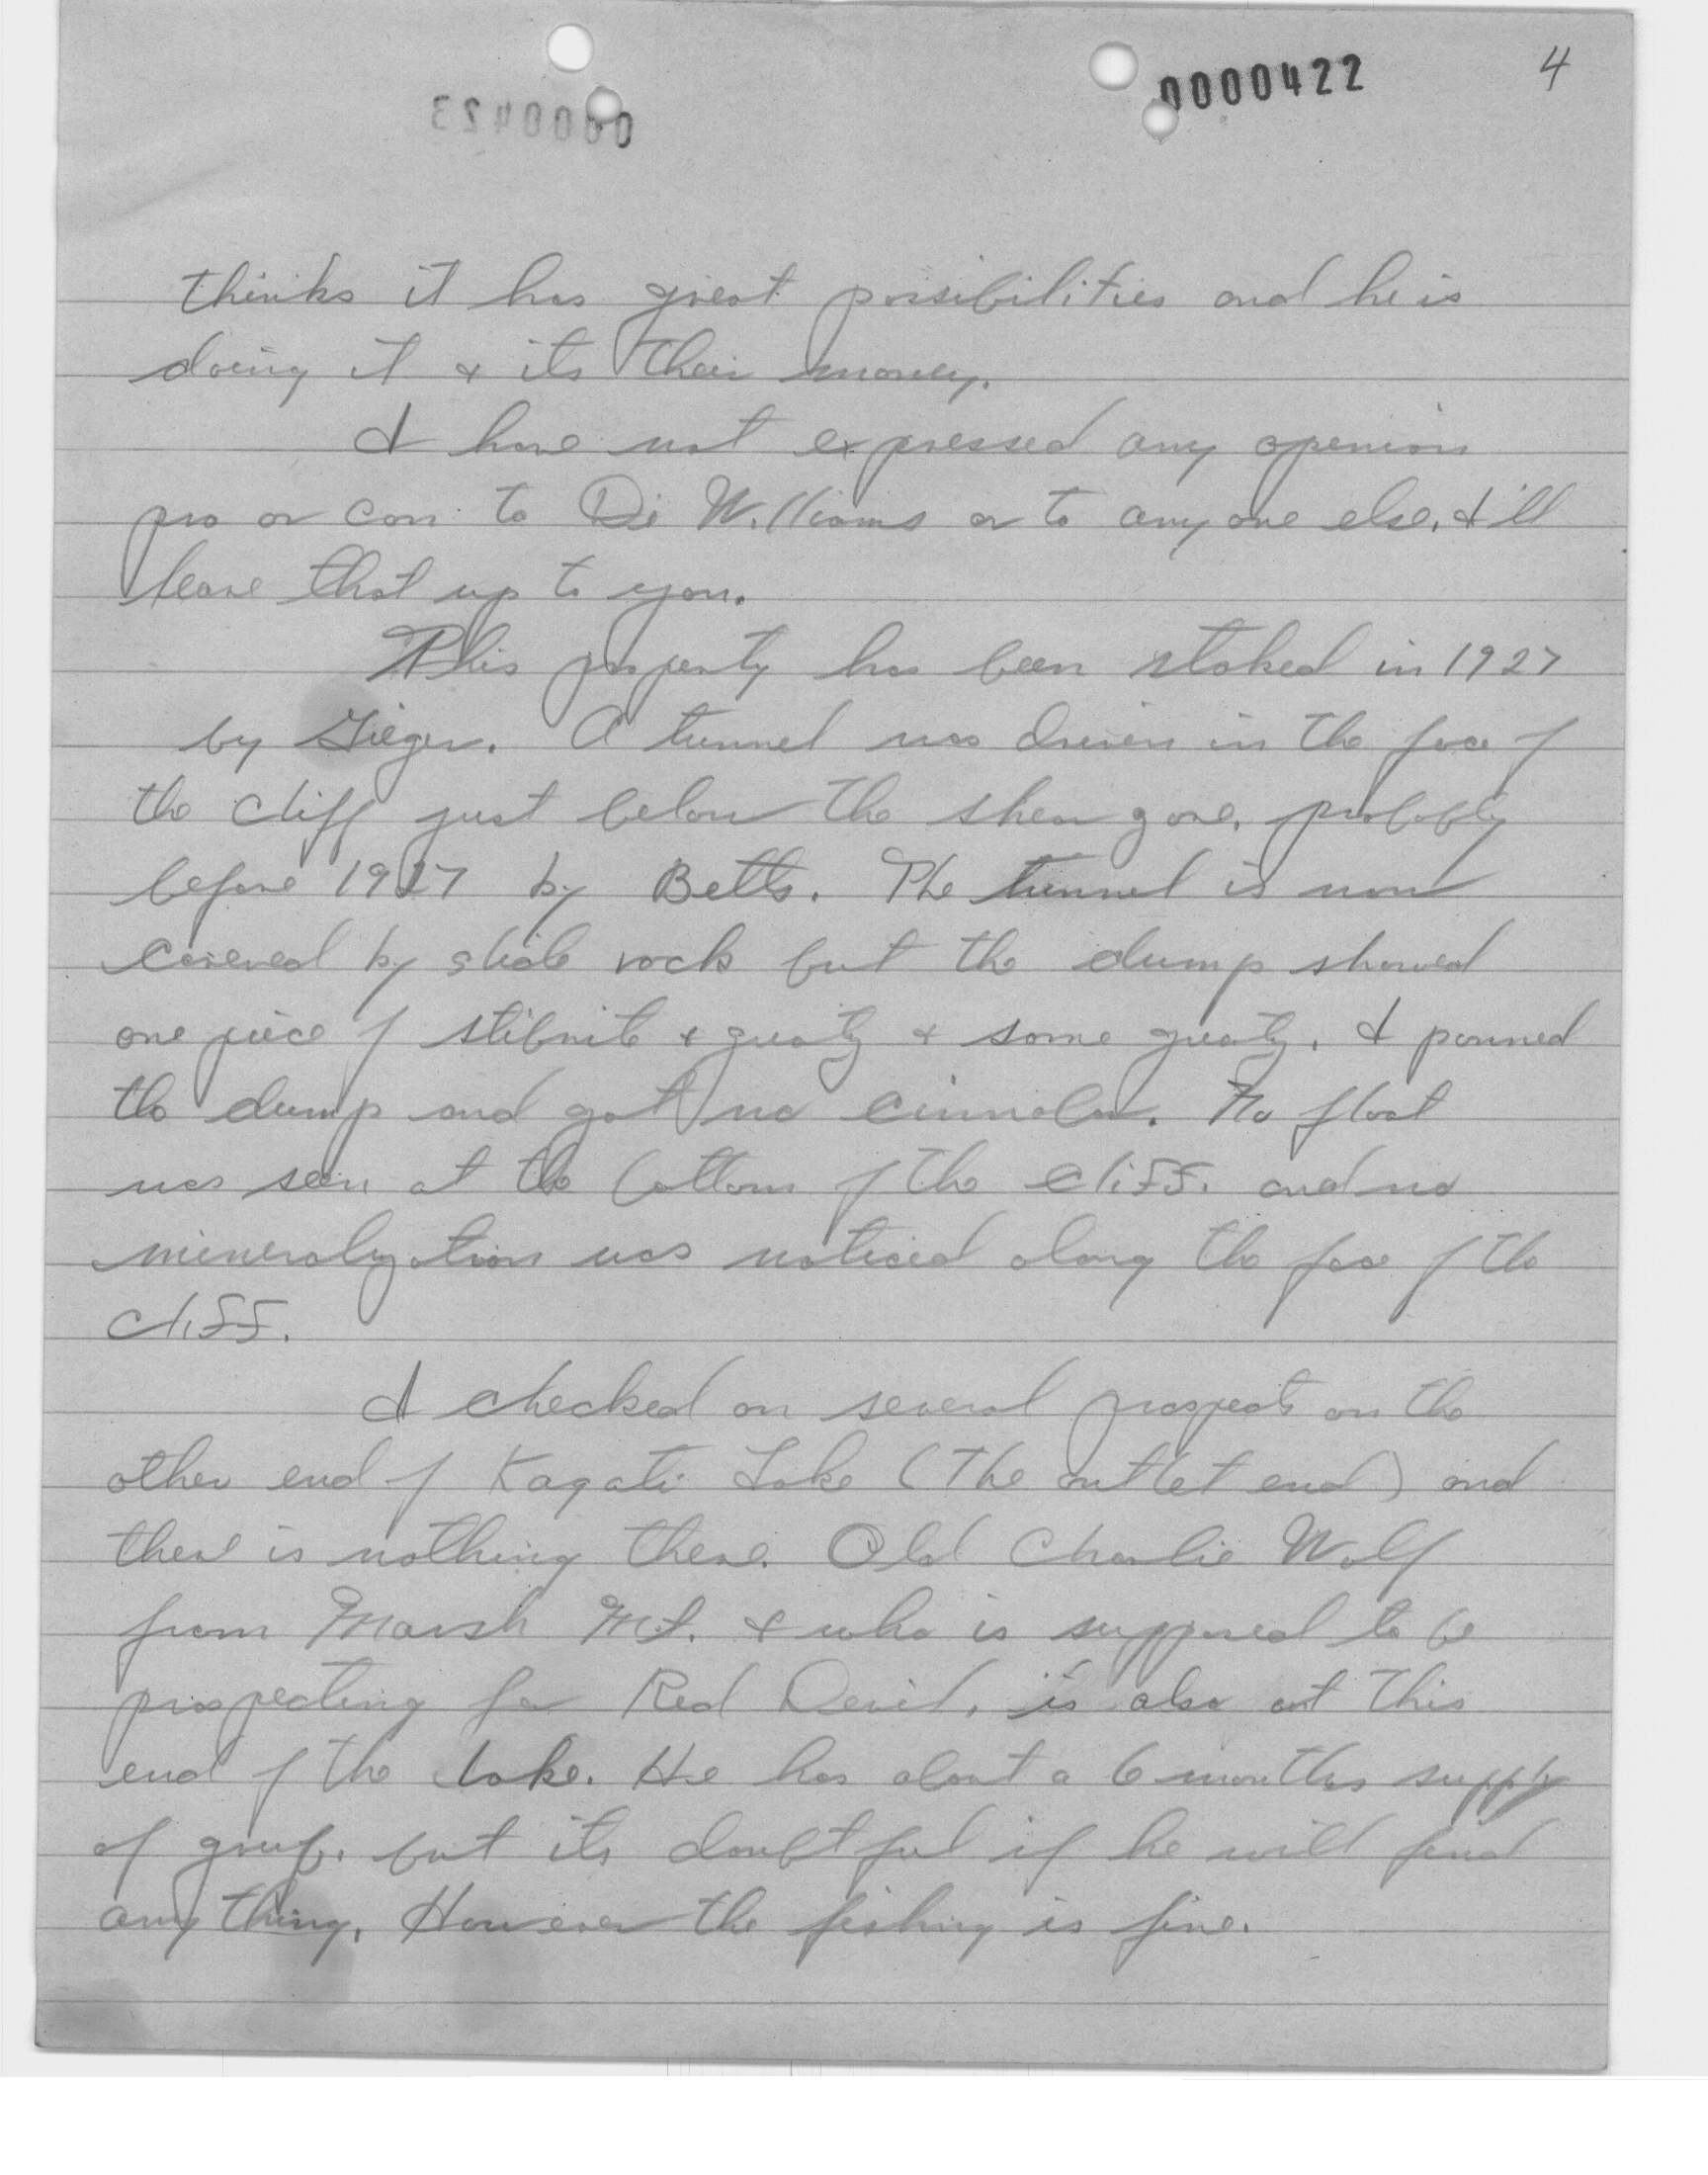 0000422
4
0000423
thinks it has great possibilities and he is
doing it & its their money.
I have not expressed any openion
pro or con to Dr Williams or to any one else, I'll
leave that up to you.
This property has been staked in 1927
by Gieger. A tunnel was driven in the face of
the cliff just below the shear zone, probably
before 1927 by Betts. The tunnel is now
covered by slide rock but the dump showed
one piece of stibnite & quartz & some quartz. I panned
the dump and got no cinnabar. No float
was seen at the bottom of the cliff. and no
mineralization was noticed along the face of the
cliff.
I checked on several prospects on the
other end of Kagati Lake (The outlet end) and
there is nothing there. Old Charlie Wolf
from Marsh Mt. & who is supposed to be
prospecting for Red Devil, is also at this
end of the lake. He has about a 6 months supply
of grub, but its doubtful if he will find
any thing. However the fishing is fine.